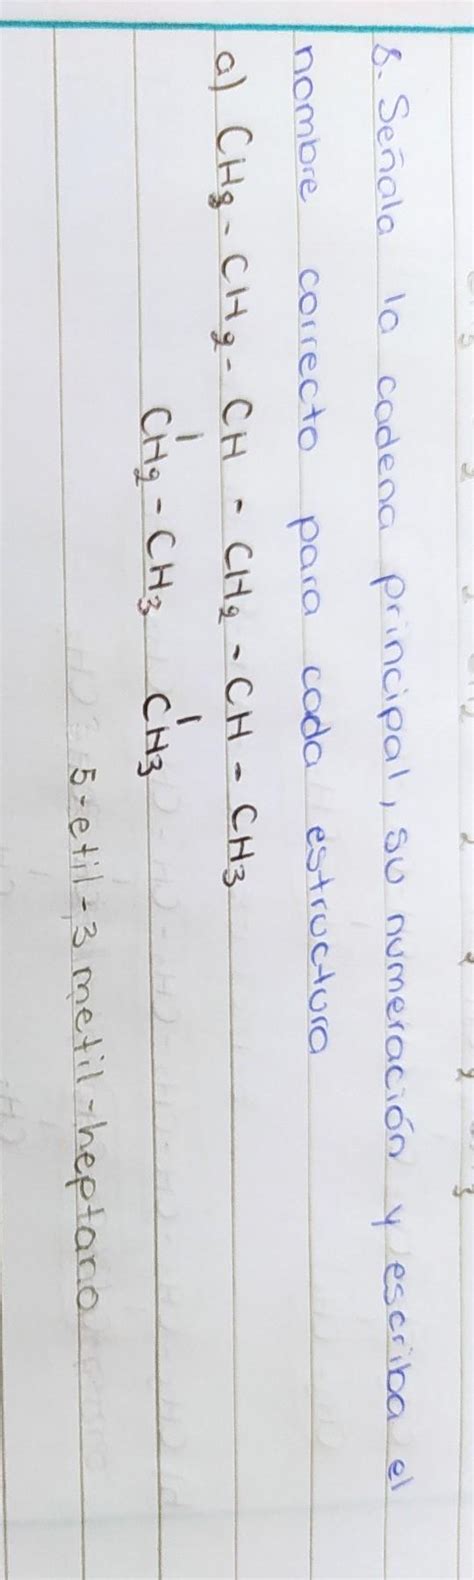 8. Señala la cadena principal, su numeración y escriba el
nombre correcto para cada estructura
a) CH3 - CH2 - CH - CH2 - CH - CH3
CH2 - CH3 CH3
5-etil-3 metil-heptano